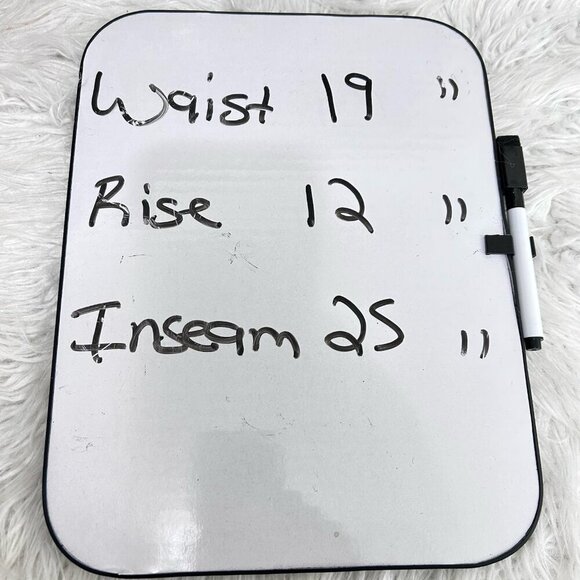 Waist 19 "
Rise 12 "
Inseam 25 "